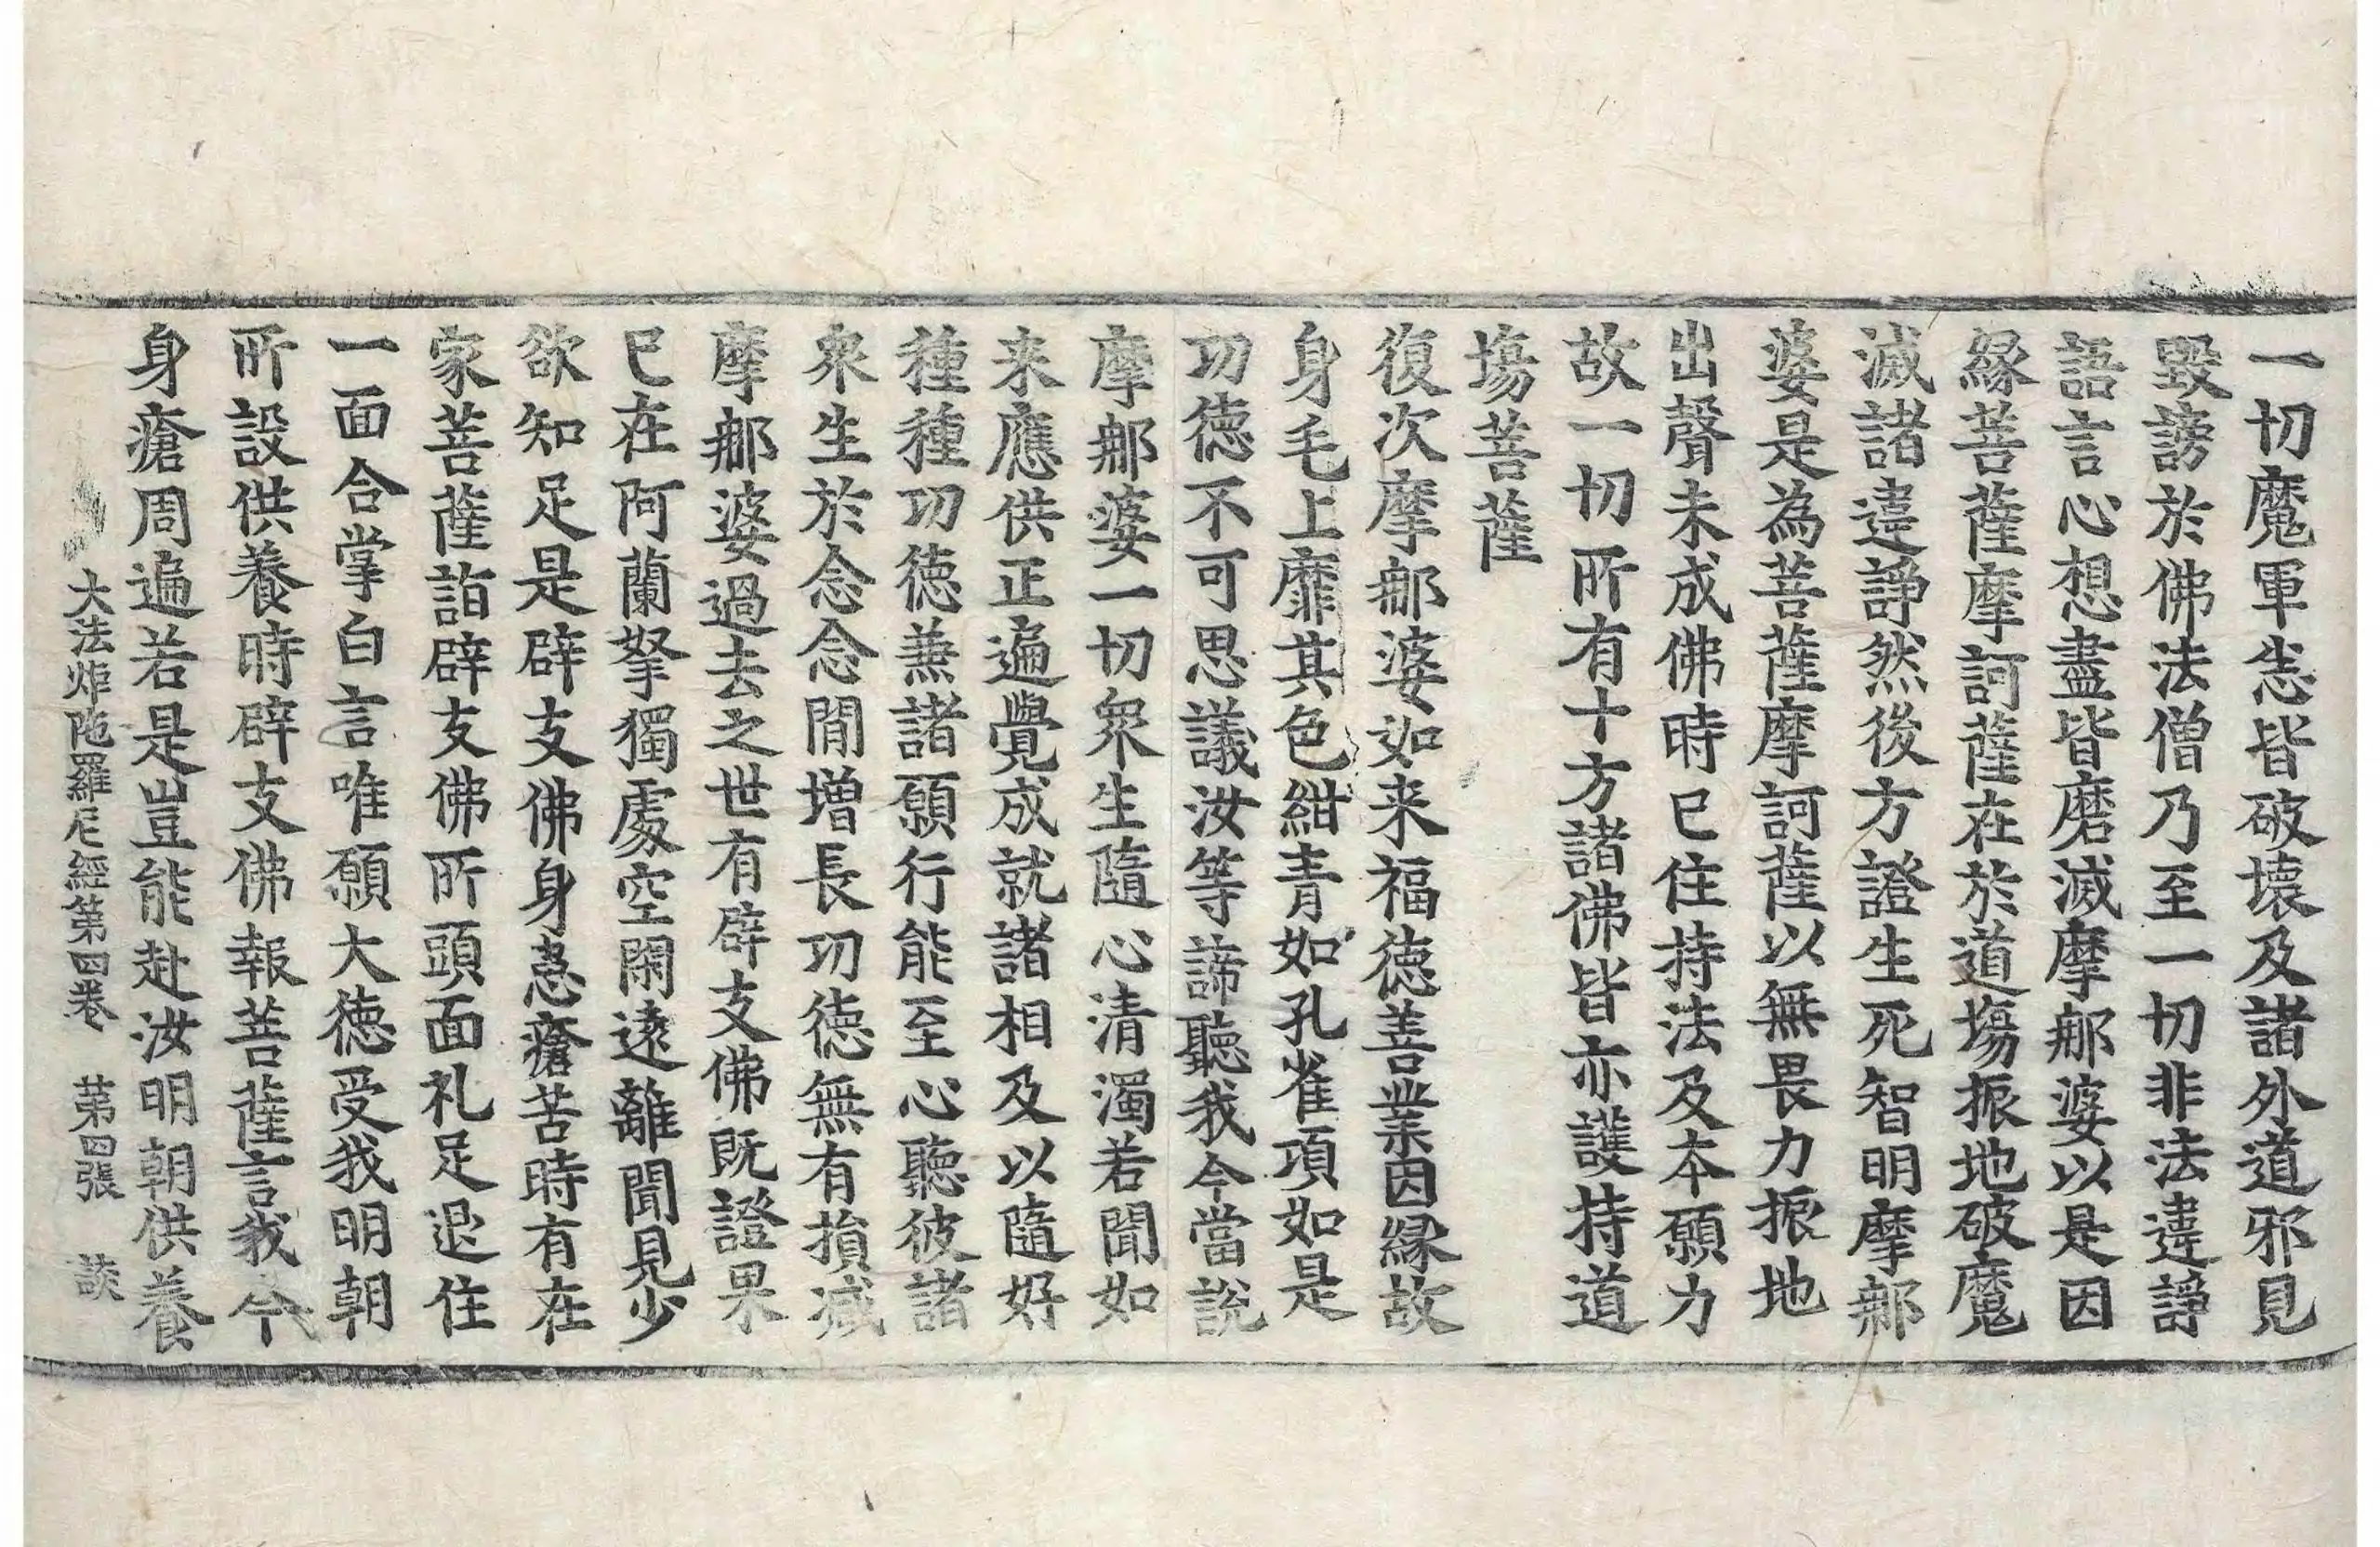 一切魔軍悉皆破壞及諸外道邪見
毀謗於佛法僧乃至一切非法違諍
語言心想盡皆磨滅摩那婆以是因
緣菩薩摩訶薩在於道場振地破魔
滅諸違諍然後方證生死智明摩那
婆是為菩薩摩訶薩以無畏力振地
出聲未成佛時已住持法及本願力
故一切所有十方諸佛皆亦護持道
場菩薩
復次摩那婆如来福徳善業因緣故
身毛上靡其色紺青如孔雀項如是
功徳不可思議汝等諦聽我今當說
摩那婆一切衆生隨心清濁若聞如
来應供正遍覺成就諸相及以隨好
種種功徳兼諸願行能至心聽彼諸
衆生於念念閒增長功徳無有損减
摩那婆過去之世有辟支佛既證果
已在阿蘭拏獨處空閑遠離聞見少
欲知足是辟支佛身患瘡苦時有在
家菩薩詣辟支佛所頭面礼足退住
一面合掌白言唯願大徳受我明朝
所設供養時辟支佛報菩薩言我今
身瘡周遍若是豈能赴汝明朝供養
大法炬陁羅尼經第四卷　第四張　談